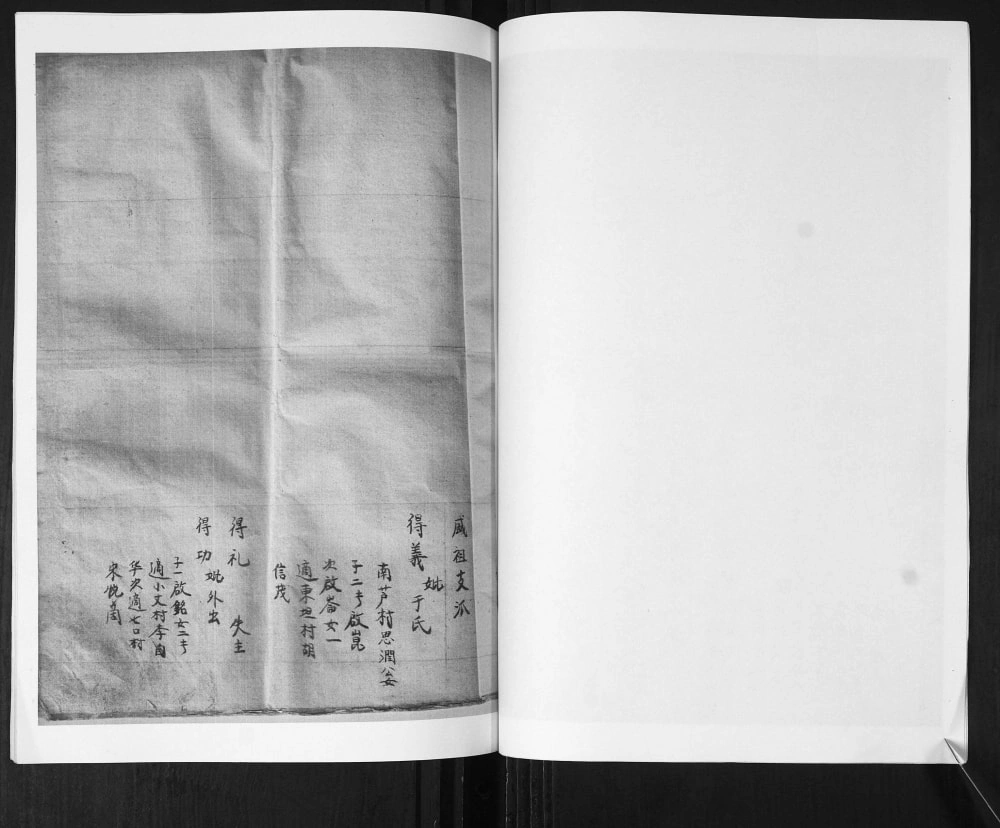 威祖支派
得義妣于氏
南芦村思潤公女
子二長啟崑
次啟崙女一
適東垣村胡
信茂
得礼 失主
得功妣外出
子一啟銘女二長
適小丈村李自
华次適七口村
宋悅